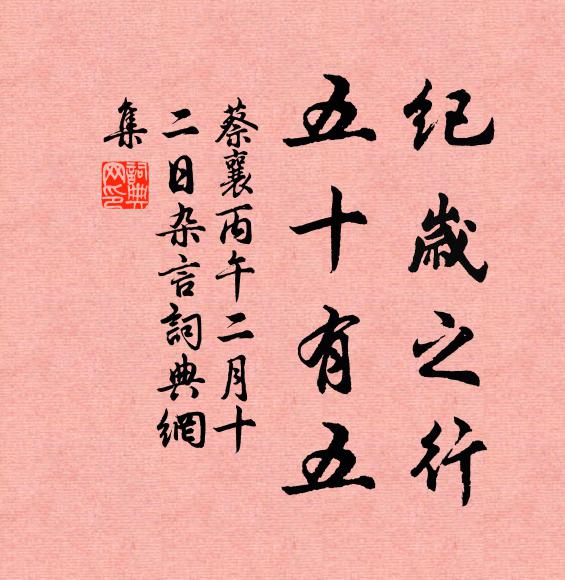 紀歲之行
五十有五
蔡襄丙午二月十
二日杂言詞典網
集
詞典
网印